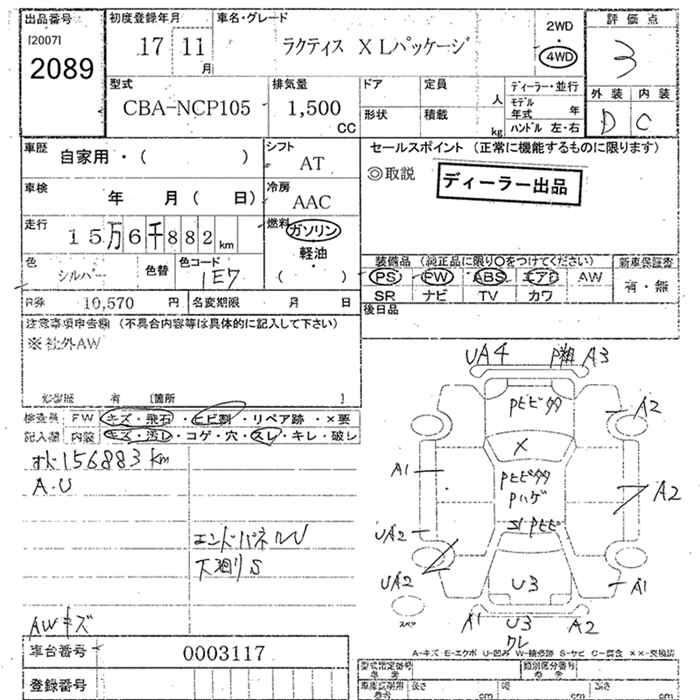 出品番号
[2007]
2089
初度登録年月
17 11 月
車名・グレード
ラクティス X Lパッケージ
2WD
・
4WD
評価点
3
外装 内装
D C
型式
CBA-NCP105
排気量
1,500
CC
ドア
定員
人
形状
積載
kg
ディーラー・並行
モデル年式 年
ハンドル 左・右
車歴
自家用・( )
シフト
AT
セールスポイント (正常に機能するものに限ります)
◎取説
ディーラー出品
車検
年 月( 日)
冷房
AAC
走行
15万6千882km
燃料
ガソリン
軽油
( )
色
シルバー
色替
色コード
1E7
装備品 (純正品に限り○をつけてください)
PS PW ABS エアB AW
SR ナビ TV カワ
新車保証書
有・無
R券 10,570 円
名変期限 月 日
後日品
注意事項申告欄 (不具合内容等は具体的に記入して下さい)
※社外AW
修復歴 有 [箇所 ]
検査員 FW キズ・飛石・ヒビ割・リペア跡・×要
記入欄 内装 キズ・汚レ・コゲ・穴・スレ・キレ・破レ
156883km
A・U
エンドパネルU
下廻りS
AWキズ
UA4 A3
A2
X
A1
A2
UA2
UA2
U3
A1
スペア
A1 U3 A2
ワレ
A-キズ E-エクボ U-凹み W-補修跡 S-サビ C-腐食 ××-交換済
車台番号
0003117
登録番号
型式指定番号
類別区分番号
長さ cm
幅 cm
高さ cm